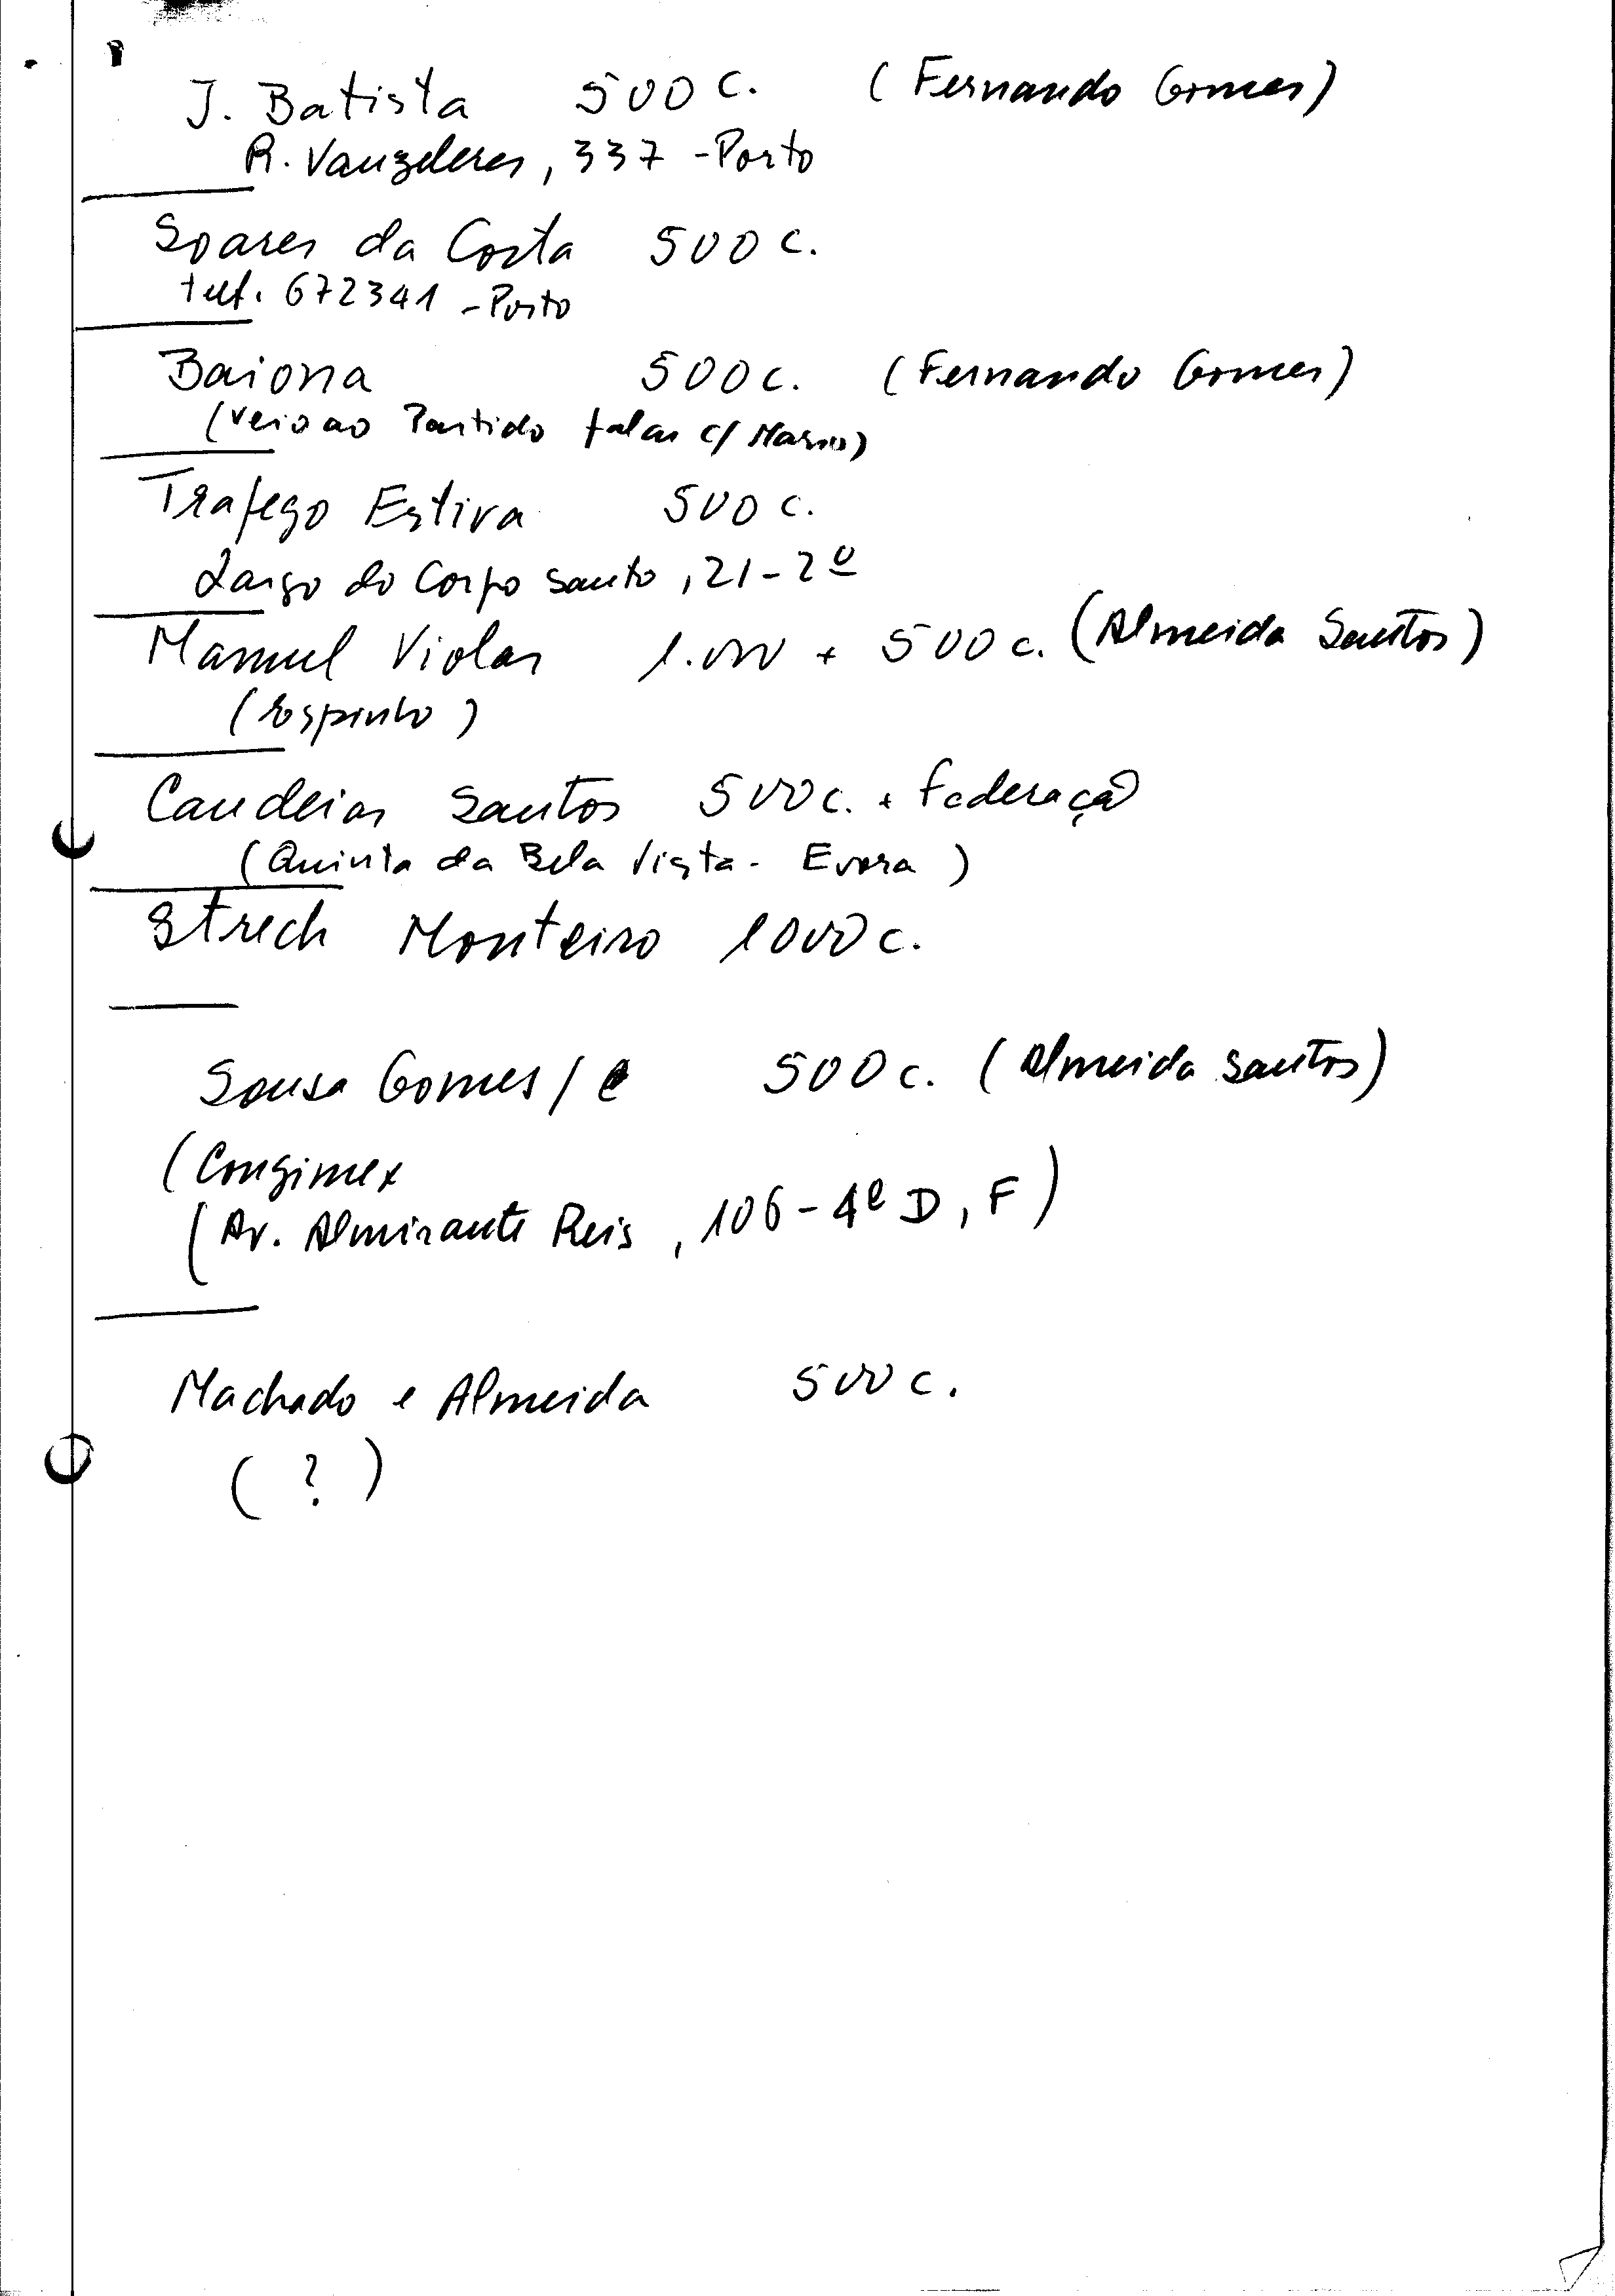 J. Batista 500 c. (Fernando Gomes)
R. Vanzeleres, 337 - Porto
Soares da Costa 500 c.
telf. 672341 - Porto
Baiona 500 c. (Fernando Gomes)
(Veio ao Partido falar c/ Mario)
Trafego Estiva 500 c.
Largo do Corpo Santo, 21-2º
Manuel Violas 1.000 + 500 c. (Almeida Santos)
(Espinho)
Candeias Santos 500 c. + Federação
(Quinta da Bela Vista - Evora)
Strech Monteiro 1000 c.
Sousa Gomes / 500 c. (Almeida Santos)
(Congimex
(Av. Almirante Reis, 106-4º D, F)
Machado e Almeida 500 c.
( ? )